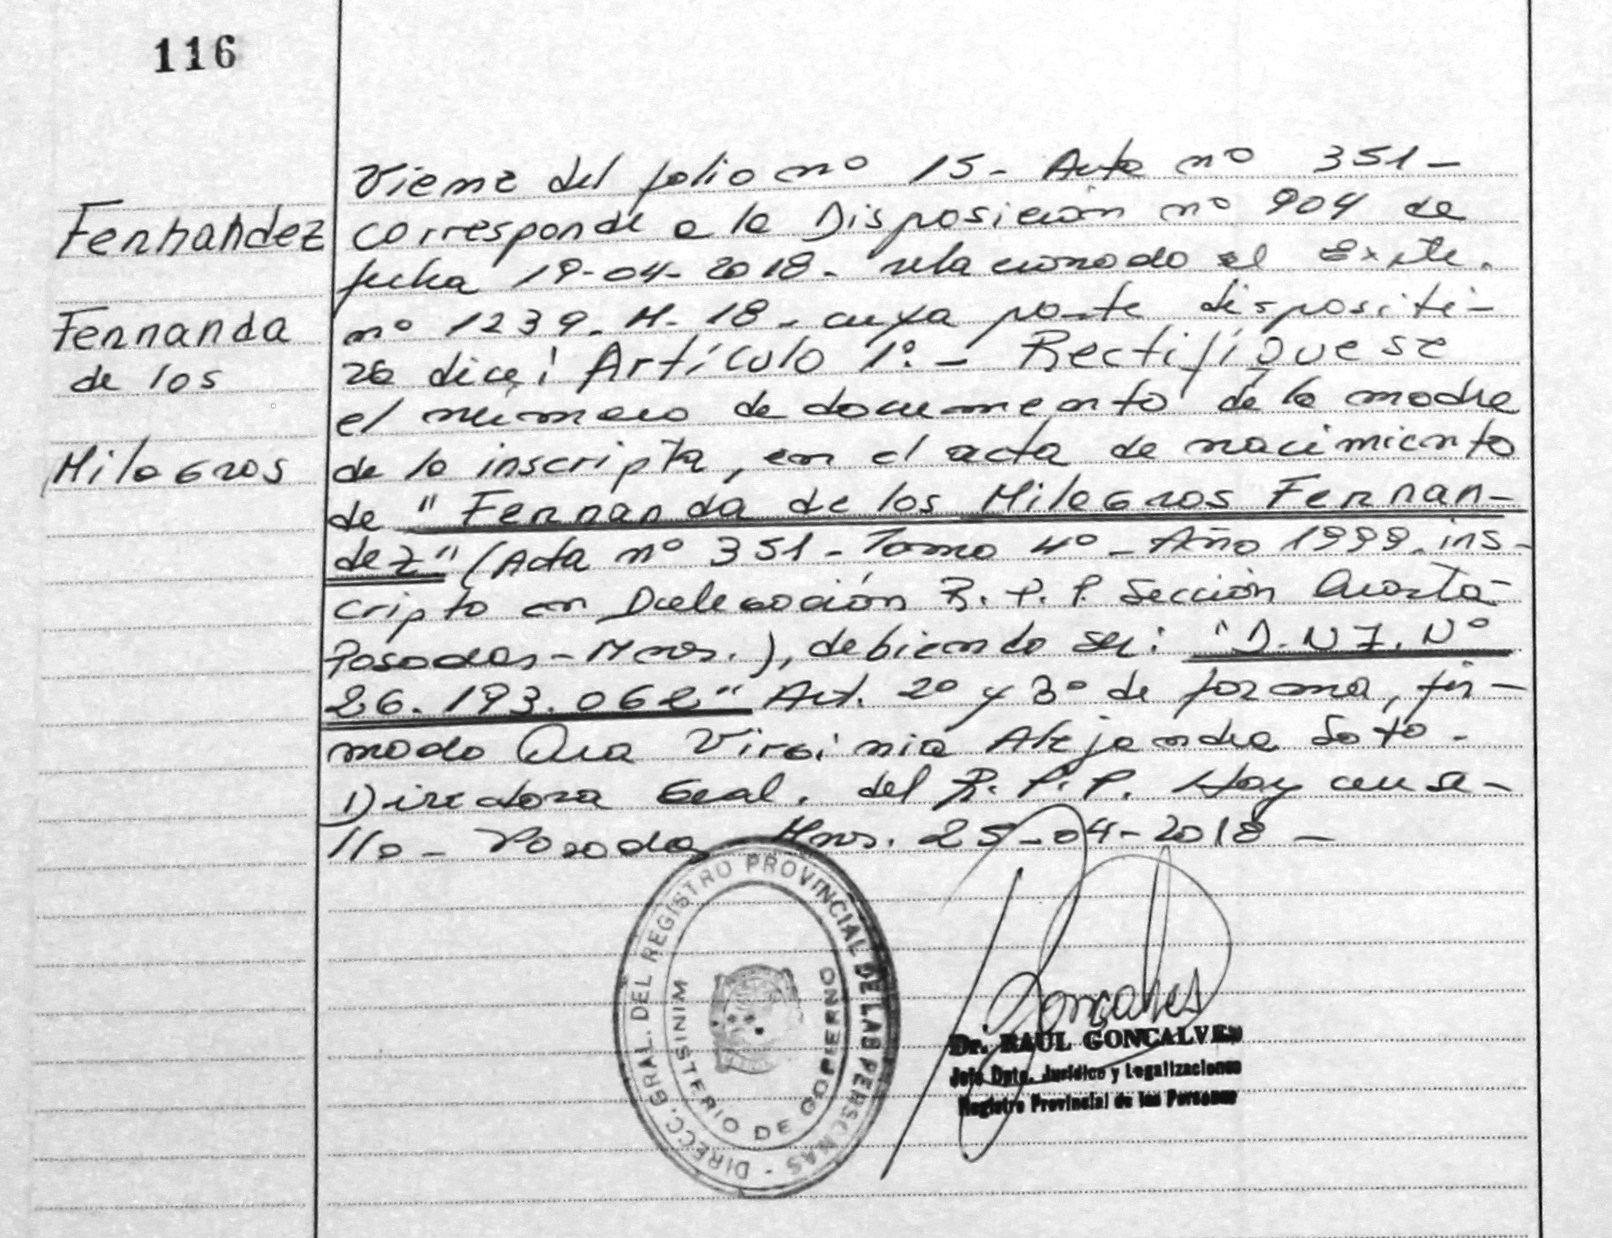 116
Fernandez
Fernanda
de los
Milagros
Viene del folio nº 15 - Acta nº 351 -
corresponde a la Disposición nº 904 de
fecha 19-04-2018 - relacionado el Expte.
nº 1239. M- 18 - cuya parte dispositi-
va dice: Artículo 1º. - Rectifíquese
el número de documento de la madre
de la inscripta, en el acta de nacimiento
de "Fernanda de los Milagros Fernan-
dez" (Acta nº 351 - Tomo 4º - Año 1999. ins-
cripto en Delegación R. P. P. Sección Cuarta -
Posadas - Mnes.), debiendo ser: "D.N.I. Nº
26.193.062" Art. 2º y 3º de forma, fir-
mado Dra Virginia Alejandra Soto -
Directora Gral. del R. P. P. Hay un se-
llo - Posadas Mnes. 25-04-2018 -
DIRECC. GRAL. DEL REGISTRO PROVINCIAL DE LAS PERSONAS -
MINISTERIO DE GOBIERNO
Goncalves
Dr. RAUL GONCALVES
Jefe Dpto. Jurídico y Legalizaciones
Registro Provincial de las Personas